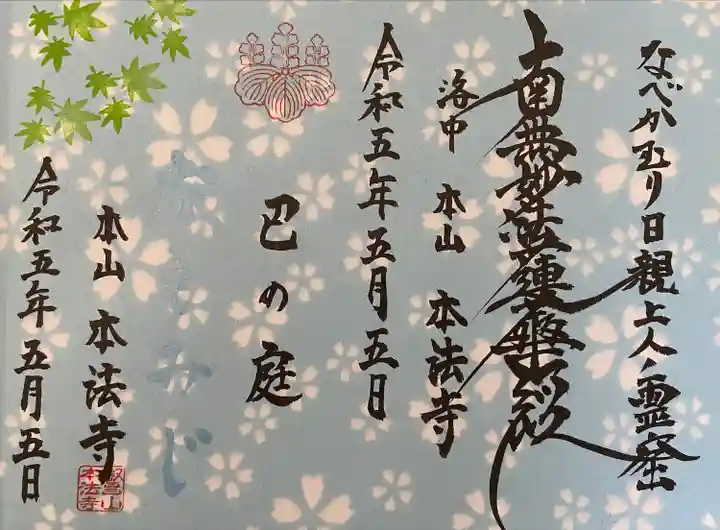 なべかむり日親上人ノ霊窟
南無妙法蓮華経
洛中 本山 本法寺
令和五年五月五日
巴の庭
本山 本法寺
令和五年五月五日
叡昌山
本法寺